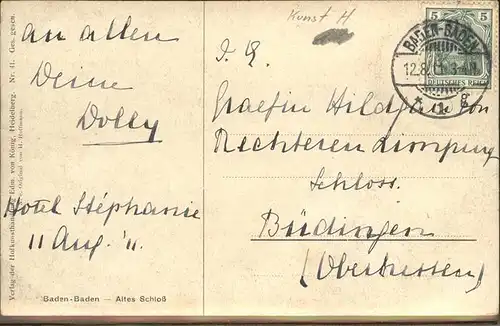 Kunst H
an allen
Deine
Dolly
Hotel Stéphanie
11 Aug. '11.
Baden-Baden — Altes Schloß
Verlag der Hofkunsthandlung Edm. von König, Heidelberg. Nr. 41. Ges. gesch.
Original von H. Hoffmann.
5 5
DEUTSCHES REICH
BADEN-BADEN
12.8.
I. E.
Graefin Hildegard von
Rechteren Limpurg
Schloss.
Büdingen
(Oberhessen)